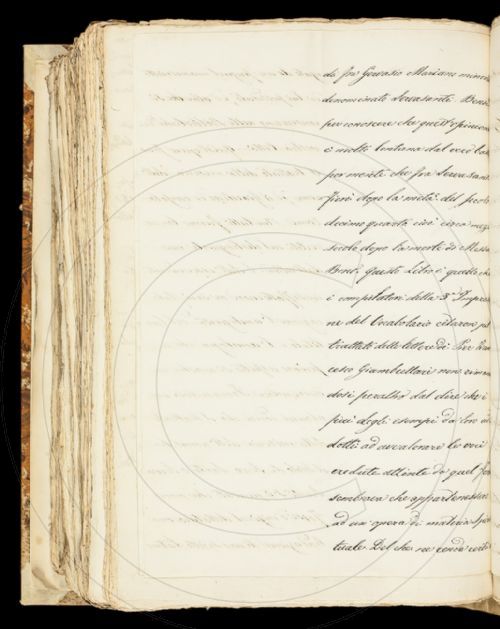 da fra Gervasio Mariano mino
denominato Servasanto. Bonu
per conoscere che quest'opinion
è molto lontana dal vero ba
por mente che fra Servasanto
fiorì dopo la metà del secolo
decimo quarto cioè circa mezzo
secolo dopo la morte di Messer
Bono. Questo Libro è quello che
i compilatori della 3ª Impres
ne del Vocabolario citarono
trattato delle lettere di Pier Fran
cesco Giambullari non
dosi peraltro dal dire che i
più degli esempi da loro ad
dotti ad avvalorare le voci
credute attinte da quel
sembrava che appartenessero
ad un opera di materia Spiri
tuale. Del che ne rende certo